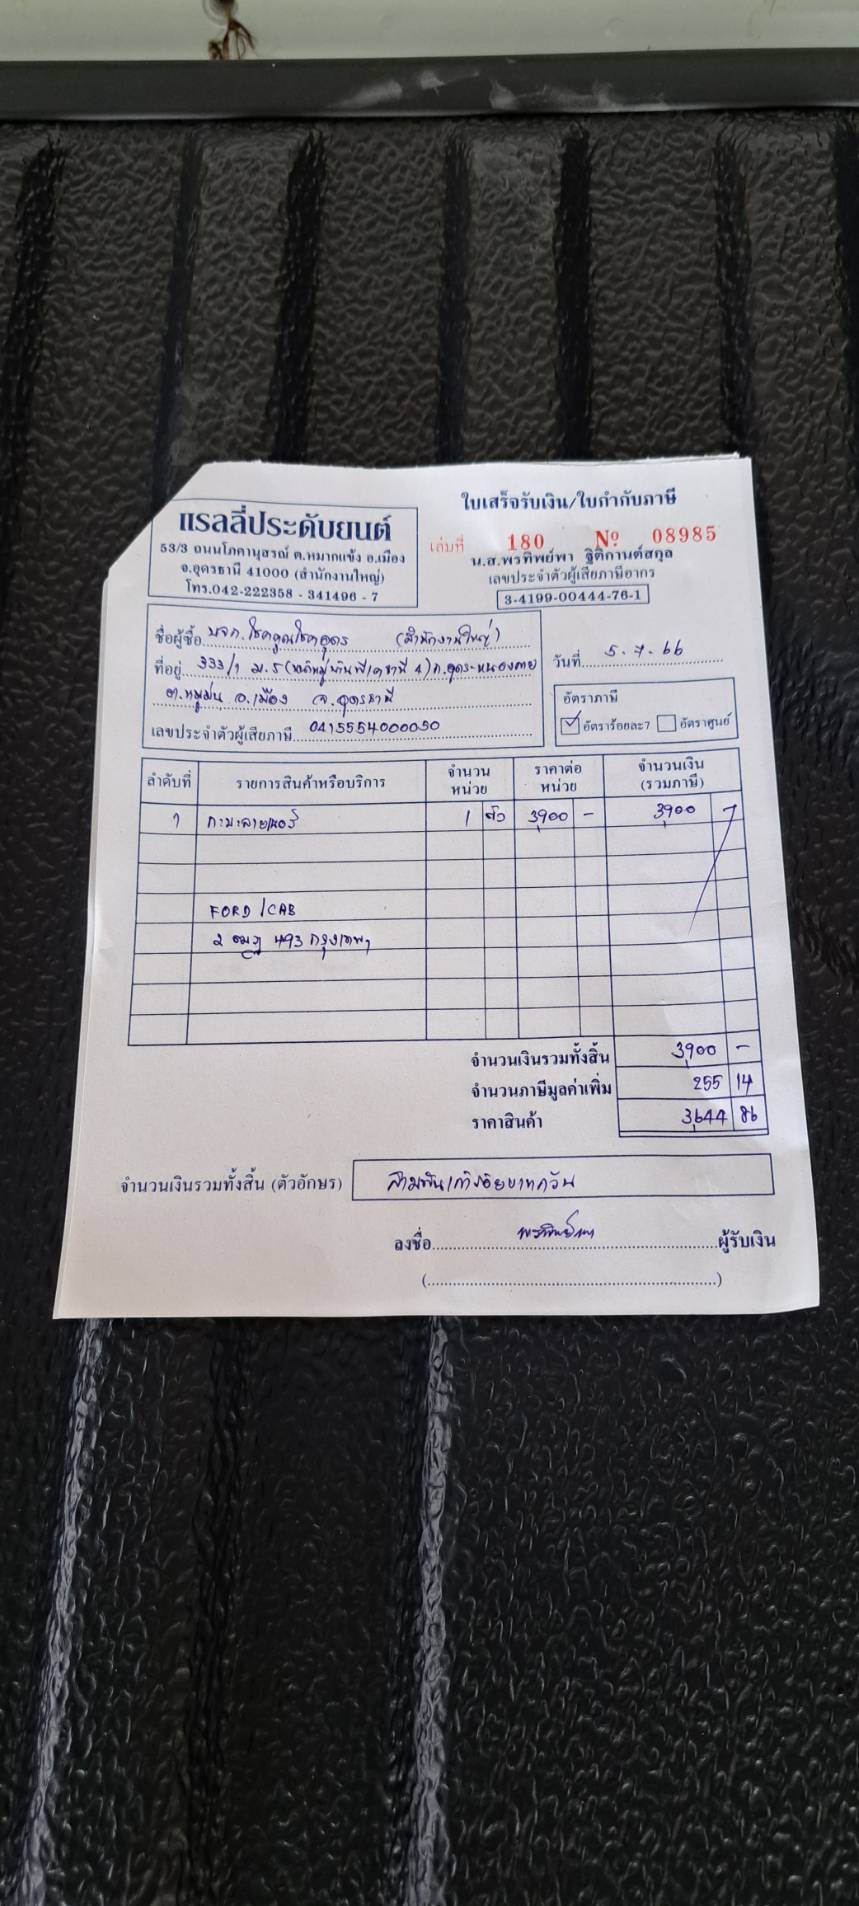 ใบเสร็จรับเงิน/ใบกำกับภาษี
แรลลี่ประดับยนต์
53/3 ถนนโภคานุสรณ์ ต.หมากแข้ง อ.เมือง
จ.อุดรธานี 41000 (สำนักงานใหญ่)
โทร.042-222358 - 341496 - 7
เล่มที่ 180 Nº 08985
น.ส.พรทิพย์พา ฐิติกานต์สกุล
เลขประจำตัวผู้เสียภาษีอากร
3-4199-00444-76-1
ชื่อผู้ซื้อ บจก.โชคคูณโชคอุดร (สำนักงานใหญ่)
ที่อยู่ 333/1 ม.5 4) ถ.อุดร-หนองคาย
ต.หมูม่น อ.เมือง จ.อุดรธานี
เลขประจำตัวผู้เสียภาษี 0415554000050
วันที่ 5-7-66
อัตราภาษี
อัตราร้อยละ7 อัตราศูนย์
ลำดับที่ รายการสินค้าหรือบริการ จำนวนหน่วย ราคาต่อหน่วย จำนวนเงิน (รวมภาษี)
1 1 3,900 - 3,900 -
FORD /CAB
2 493 กรุงเทพฯ
จำนวนเงินรวมทั้งสิ้น 3,900 -
จำนวนภาษีมูลค่าเพิ่ม 255 14
ราคาสินค้า 3,644 86
จำนวนเงินรวมทั้งสิ้น (ตัวอักษร) สามพันเก้าร้อยบาทถ้วน
ลงชื่อ พรทิพย์พา ผู้รับเงิน